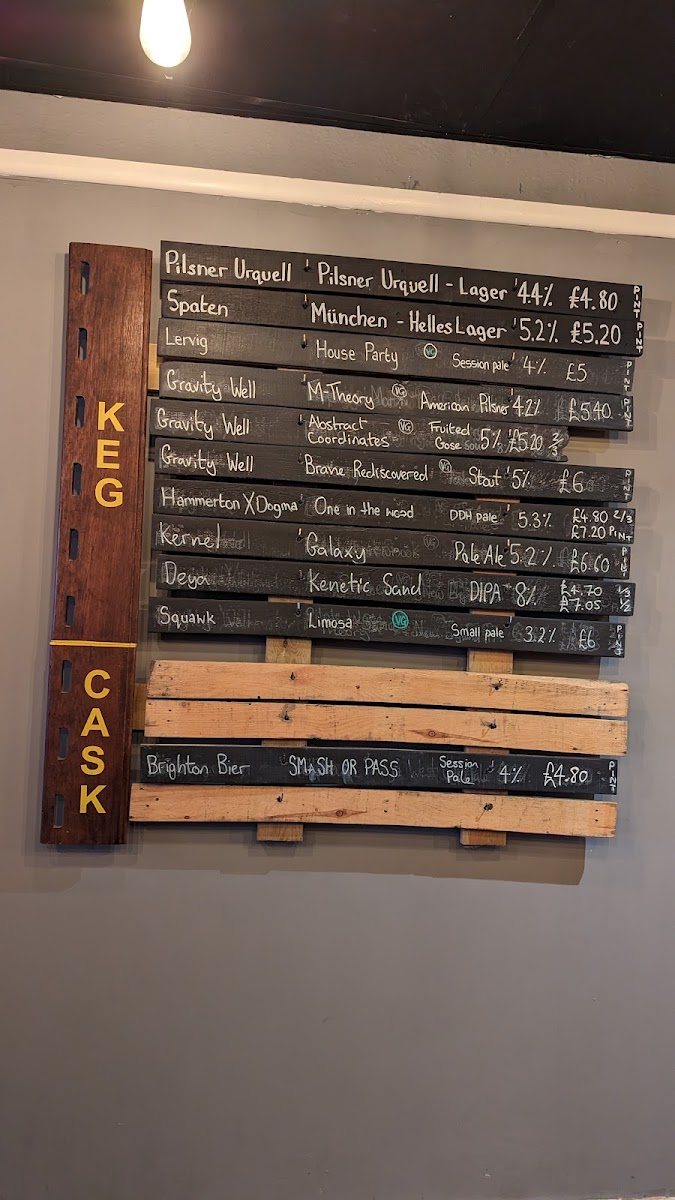 KEG
Pilsner Urquell Pilsner Urquell - Lager 4.4% £4.80 PINT
Spaten München - Helles Lager 5.2% £5.20 PINT
Lervig House Party VG Session pale 4% £5 PINT
Gravity Well M-Theory VG American Pilsner 4.2% £5.40 PINT
Gravity Well Abstract Coordinates VG Fruited Gose 5% £5.20 2/3
Gravity Well Brave Rediscovered VG Stout 5% £6 PINT
Hammerton X Dogma One in the wood DDH pale 5.3% £4.80 2/3 £7.20 PINT
Kernel Galaxy Pale Ale 5.2% £6.60 PINT
Deya Kenetic Sand DIPA 8% £4.70 1/3 £7.05 1/2
Squawk Limosa VG Small pale 3.2% £6 PINT
CASK
Brighton Bier SMASH OR PASS Session Pale 4% £4.80 PINT